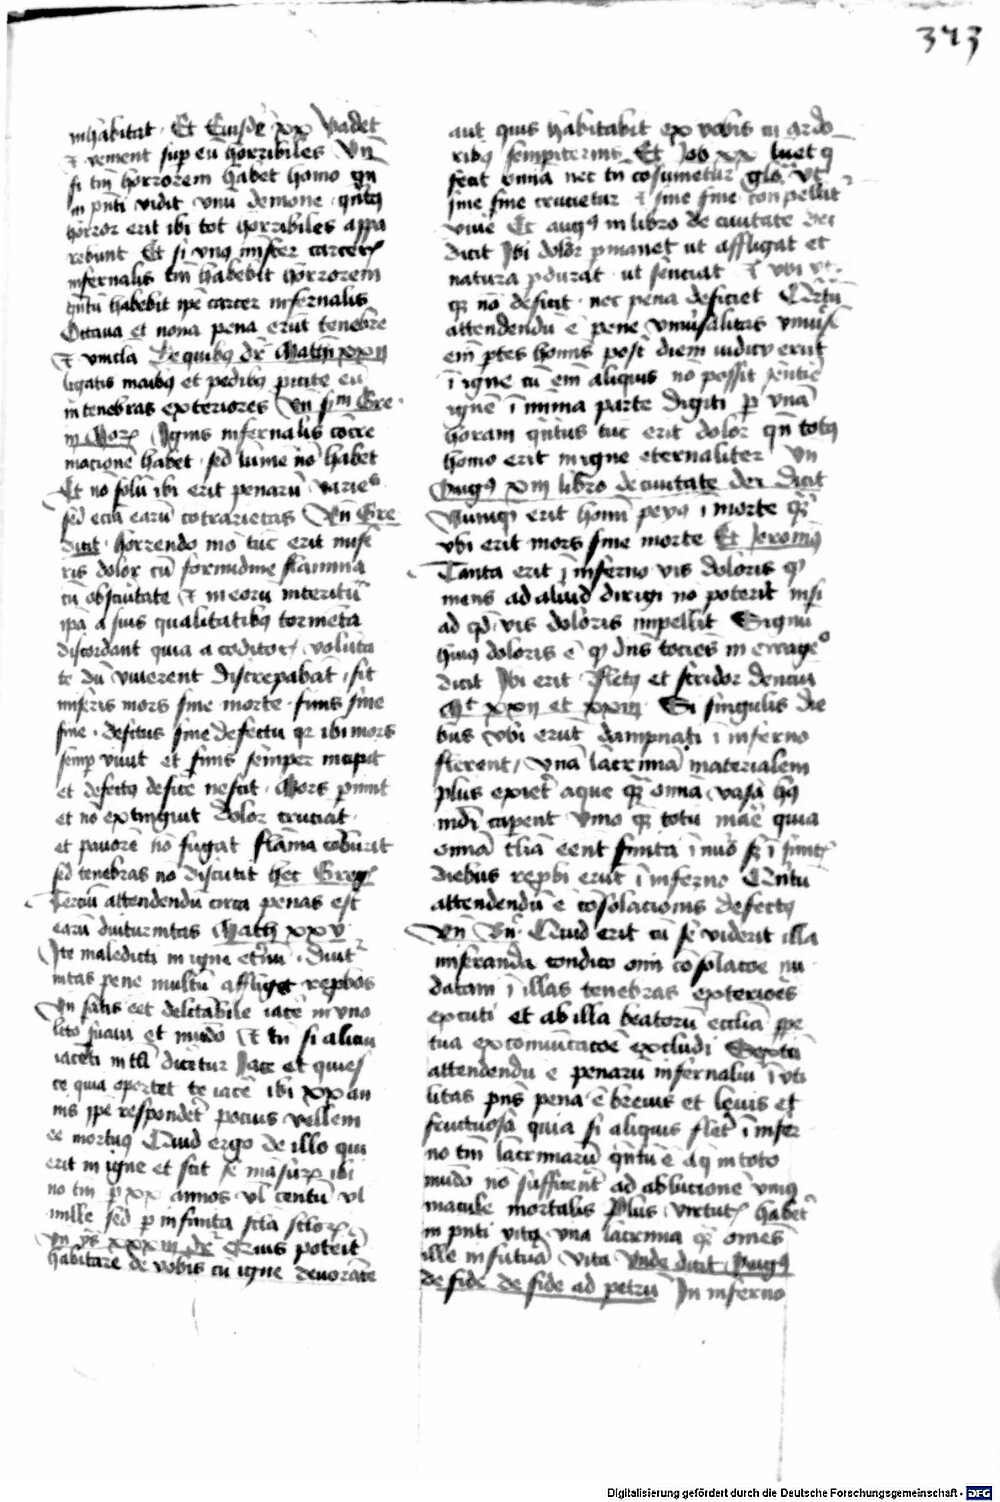 373
inhabitat · Et Eiusdē xx Vadet
⁊ venient sup eū horribiles Vn̄
si tm̄ horrorem habet homo qn̄
in pn̄ti vidit vnū demonē qn̄tꝰ
horror erit ibi tot horribiles appa
rebunt Et si vnꝰ
infernalis tm̄ habebit horrorem
qn̄tū habebit ip̄e carcer infernalis
Octaua et nona pena erūt tenebre
⁊ vincla De quibꝰ dr̄ Math xxij
ligatis maībꝰ et pedibꝰ ꝓicite eū
in tenebras exteriores Vn̄ sᵐ Gre
in Morꝝ Ignis infernalis cōcre
macionē habet · sed lumē nō habet
Et nō solū ibi erit penarū varieˢ
sed eciā earū cōtrarietas Vn̄ Gre
dicit · horrendo mō tūc erit mise
ris dolor cū formidine flamma
cū obscūtate ⁊ in eorū interitū
ip̄a a suis qualitatibꝰ tormēta
discordant quia a cōditorꝭ volūta
te dū viuerent discrepabāt · fit
miseris mors sine morte · finis sine
fine · defctus sine defectu qꝛ ibi mors
semp viuit et finis semper incipit
et defectꝰ deficē nescit · Mors pimit
et nō extinguit Dolor cruciat
et pauorē nō fugat flāma cōburit
sed tenebras nō discutit hec Gregꝰ
Terciū attendendū circa penas est
earū diuturnitas Math xxv
Ite maledicti in ignē et̄nū · Diut
nitas pene multū affligit reꝓbos
Vn̄ satis eēt delitabile iacē in vno
lcō suaui et mūdo ⁊ tn̄ si alicui
iacēti in tl̄i dicētur Iace et quies
ce quia oportet te iacē ibi xx an
nis ip̄e respondet pocius vellem
eē mortuꝰ Quid ergo de illo qui
erit in igne et scit se māsurꝝ ibi
nō tm̄ ꝑ xx annos vl̄ centū vl̄
mille sed ꝑ infinita scl̄a scl̄orꝝ
Vn̄ ys xxxiij dr̄ Quis poteit
habitare de vobis cū igne deuorāte
aut quis habitabit ex vobis cū ardo
ribꝰ sempiternis Et Job xx luet q̄
fecit om̄ia nec tn̄ cōsumetur
sine fine crucietur ⁊ sine fine conpellit
viuē Et augꝰ in libro de ciuitate dei
dicit Ibi dolor pmanet ut affligat et
natura pdurat · ut sēnciat ⁊ vbi vt
qꝫ nō deficit · nec pena deficiet Q̄rtū
attendendū ē pene vniūsalitas vniūse
em̄ ꝑtes hominis post diem iudicij erūt
ī igne cū em̄ aliquis nō possit sentiē
ignē ī mīma parte digiti ꝑ vnā
horam qn̄tus tūc erit dolor qn̄ totꝰ
homo erit in igne eternaliter Vn̄
Augꝰ xiij libro de ciuitate dei dicit
Nunq̄ erit homī peyꝰ ī morte qꝫ
vbi erit mors sine morte Et Jeromꝰ
Tanta erit ī inferno vis doloris qꝫ
mens ad aliud dirigi nō poterit nisi
ad qd̄ vis doloris impellit Signū
huiꝰ doloris ē qꝫ dn̄s tociēs in ewāgeº
dicit Ibi erit fletꝰ et stridor denciū
Mt xxij et xxiij Si singulis die
bus vbi erūt dampnati ī inferno
flerent vnā lacrimā materialem
plus exiet aque qꝫ om̄ia vasa hꝰ
mūdi capent Vmo qꝫ totū marē quia
om̄ia
diebus reꝓbi erūt ī inferno Quītū
attendendū ē cōsolacionis defectꝰ
Vn̄ Quid erit cū se viderit illa
miseranda condicō om̄i cōsolacōe nu
datam ī illas tenebras exteriores
expelli et ab illa beatorū eccliā ꝑpe
tua excomūicacōe excludi Sextū
attendendū ē penarū infernaliū īuti
litas pn̄s pena ē breuis et leuis et
fructuosa quia si aliquis flet ī infer
no tm̄ lacrimarū qn̄tū ē aq̄ in toto
mūdo nō sufficeret ad ablucionē vniꝰ
macule mortalis Plus virtutꝭ habet
in pn̄ti vita vna lacrima qꝫ om̄es
ille in futura vita Vnde dicit Augꝰ
de fide de fide ad petrū In inferno
Digitalisierung gefördert durch die Deutsche Forschungsgemeinschaft - DFG